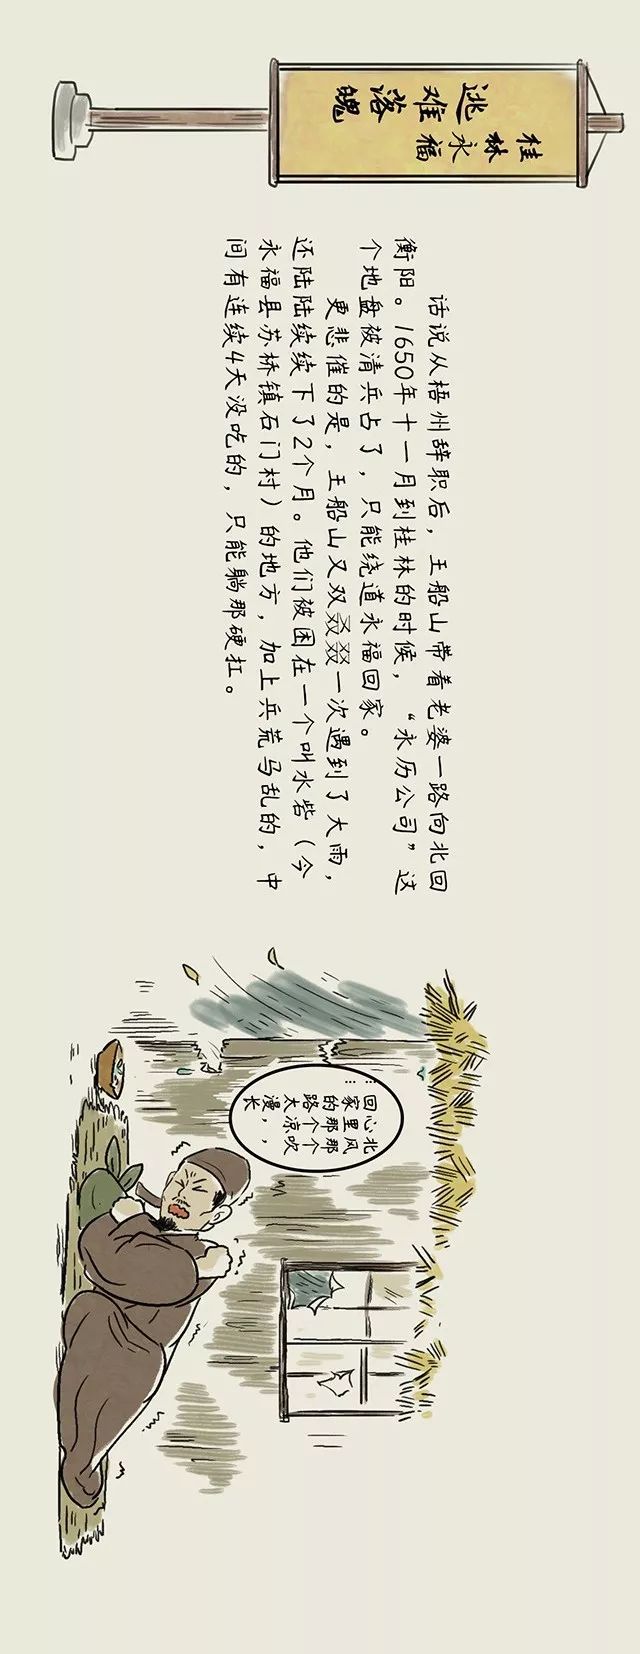 桂林永福
逃难落魄
话说从梧州辞职后，王船山带着老婆一路向北回
衡阳。1650年十一月到桂林的时候，“永历公司”这
个地盘被清兵占了，只能绕道永福回家。
更悲催的是，王船山又双叒叕一次遇到了大雨，
还陆陆续续下了2个月。他们被困在一个叫水砦（今
永福县苏桥镇石门村）的地方，加上兵荒马乱的，中
间有连续4天没吃的，只能躺那硬扛。
北风那个吹，
心里那个凉，
回家的路太漫长
……